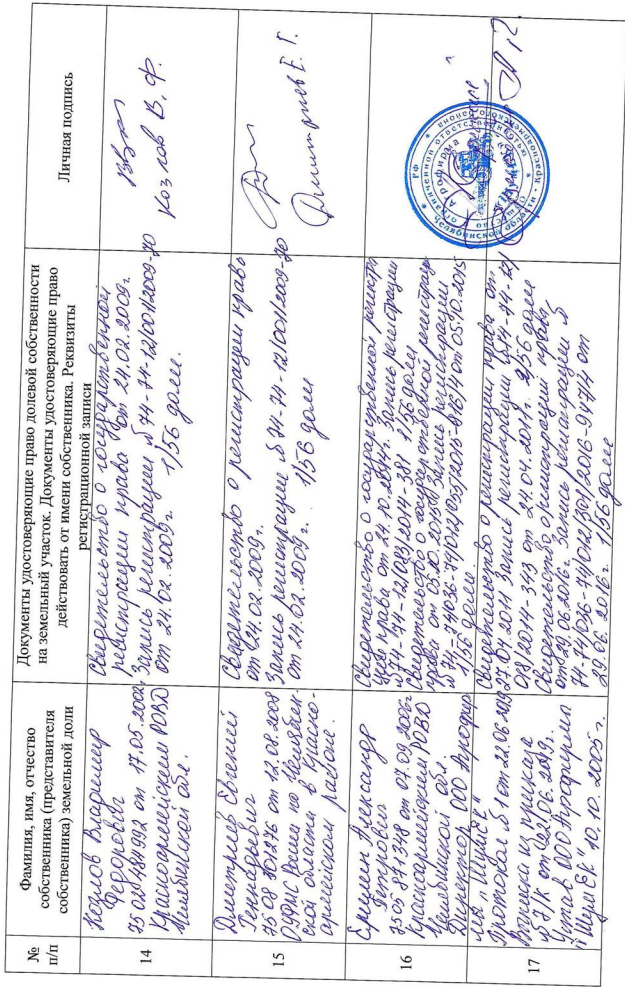 № п/п
Фамилия, имя, отчество собственника (представителя собственника) земельной доли
Документы удостоверяющие право долевой собственности на земельный участок. Документы удостоверяющие право действовать от имени собственника. Реквизиты регистрационной записи
Личная подпись
14
Козлов Владимир
Федорович
Красноармейским РОВД
Челябинской обл.
Свидетельство о государственной
регистрации права от 24.02.2009г.
Запись регистрации № 74-74-12/001/2009-70
от 24.02.2009г. 1/56 доли.
Козлов В. Ф.
15
Дмитриев Евгений
Геннадьевич
ОУФМС России по Челябин-
ской области в Красно-
армейском районе.
Свидетельство о регистрации права
от 24.02.2009г.
Запись регистрации № 74-74-12/001/2009-70
от 24.02.2009г. 1/56 доли
Дмитриев Е. Г.
16
Ершин Александр
Петрович
75 05 871348 от 07.09.2006г
Красноармейским РОВД
Челябинской обл.
Директор ООО Агрофир
Свидетельство о государственной регистр
права от 24.10.2014г. Запись регистрации
№ 74-74-12/093/2014-381 1/56 доли
Свидетельство о государственной регистрац
права от 05.10.2015г Запись регистрации
1/56 доли.
17
Протокол № 1 от 22.06.
приказа
Устав ООО Агрофирма
10.10.2005г.
Свидетельство о регистрации права от
27.04.2011 Запись регистрации № 74-74-12/
от 24.04.2011г. 2/56 доли
Свидетельство о регистрации права
от 29.06.2016г. Запись регистрации №
74-74/036-74/012/301/2016-947/4 от
29.06.2016г. 1/56 доли